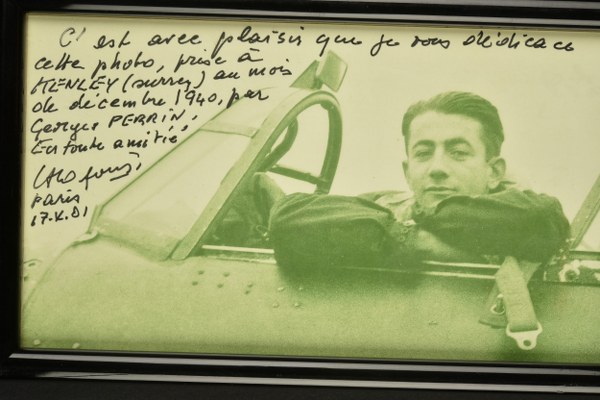 C'est avec plaisir que je vous dédicace
cette photo, prise à
KENLEY (surrey) au mois
de décembre 1940, par
Georges PERRIN,
En toute amitié,
Paris
17.X.81